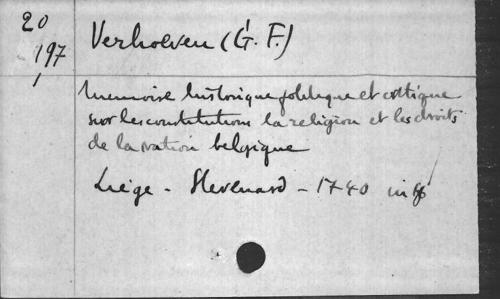 20
197
Verhoeven (G. F.)
Memoire historique politique et critique
sur les constitutions la religion et les droits
de la nation belgique
Liége - - 1740 in